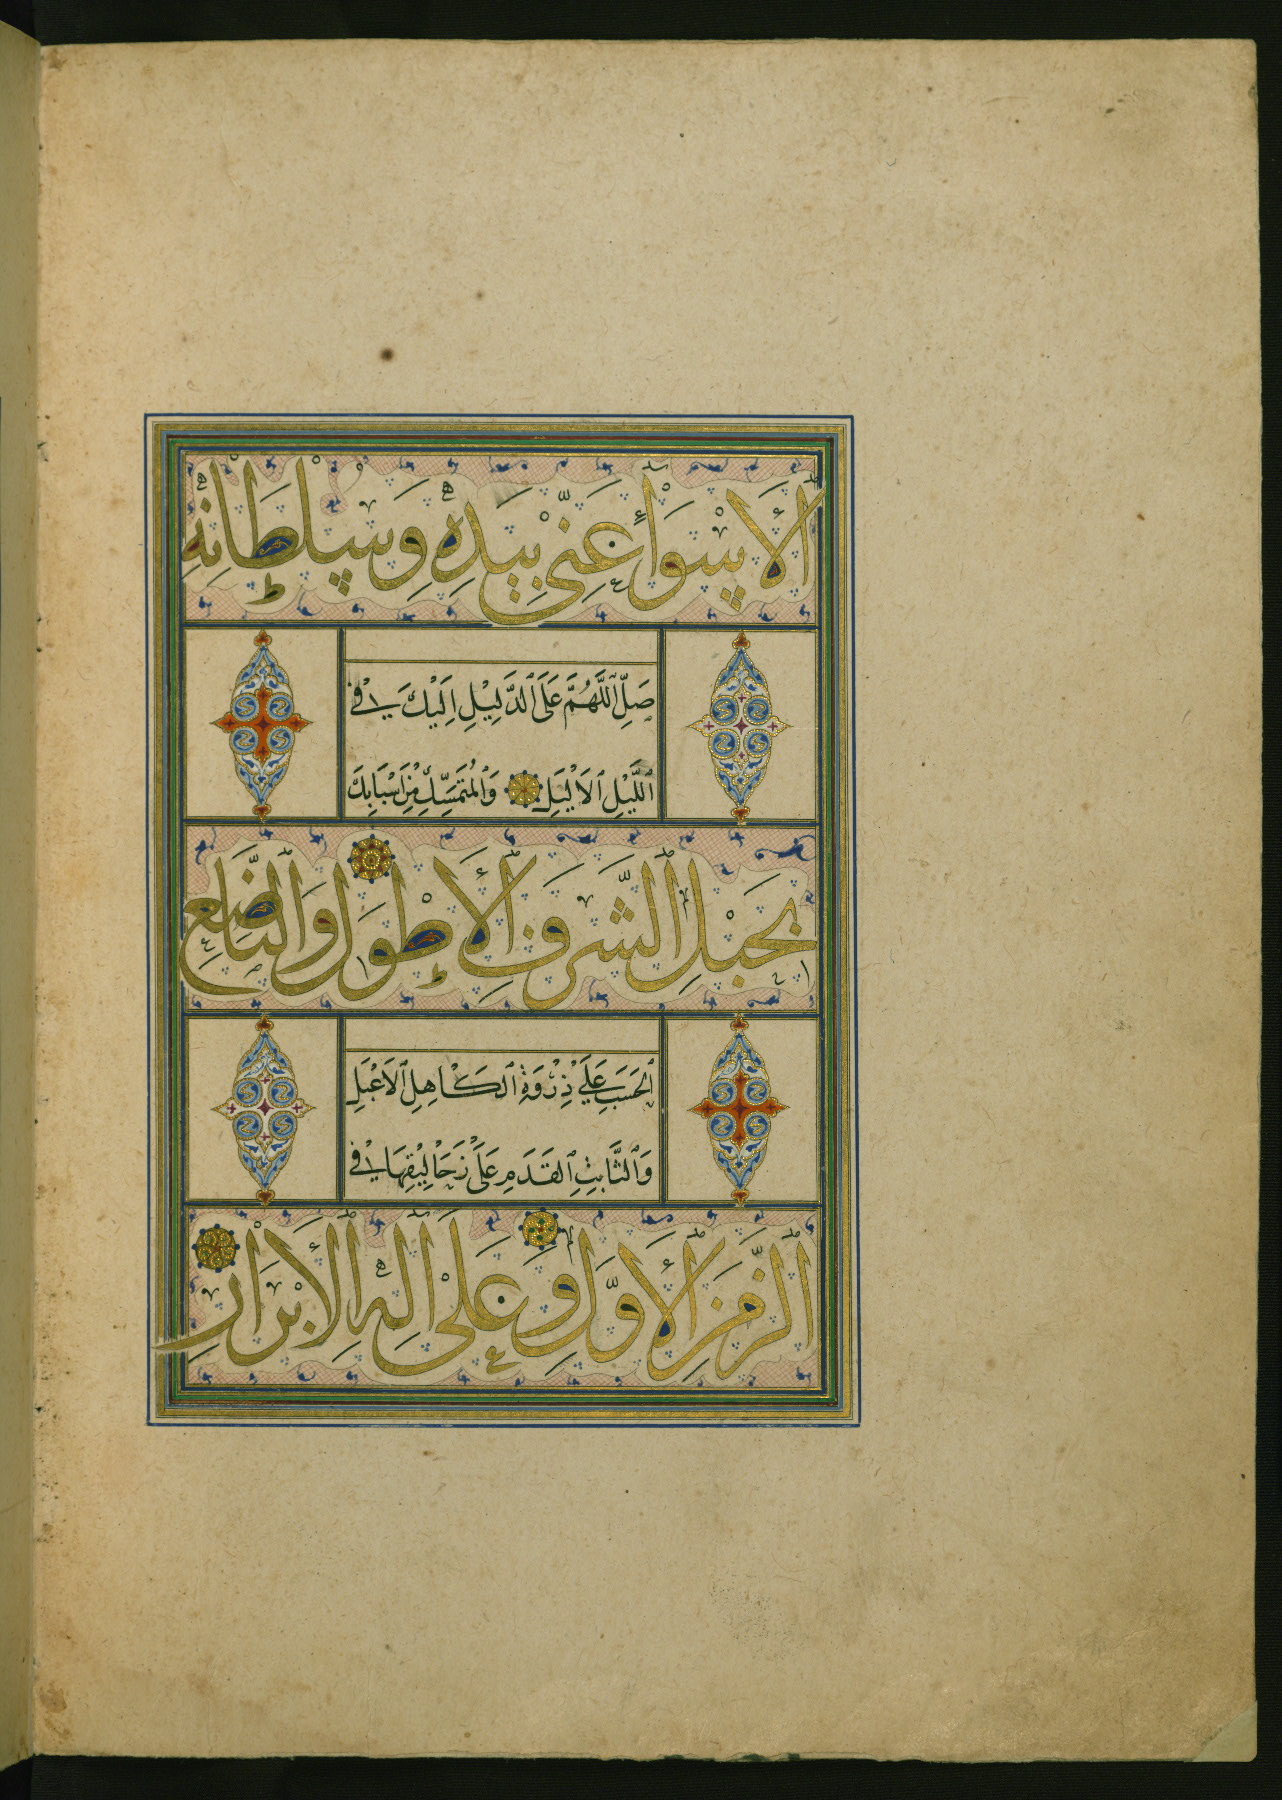 اَلْأَسْوَآءِ عَنِّي بِيَدِهِ وَسُلْطَانِهِ
صَلِّ اللَّهُمَّ عَلَى الدَّلِيْلِ اِلَيْكَ فِي
اللَّيْلِ الْاَلْيَلِ وَالْمُتَمَسِّكِ مِنْ اَسْبَابِكَ
بِحَبْلِ الشَّرَفِ الْأَطْوَلِ وَالنَّاصِعِ
الْحَسَبِ عَلَى ذِرْوَةِ الْكَاهِلِ الْاَعْبَلِ
وَالثَّابِتِ الْقَدَمِ عَلَى زَحَالِيْفِهَا فِي
الزَّمَنِ الْأَوَّلِ وَعَلَى اٰلِهِ الْأَبْرَارِ